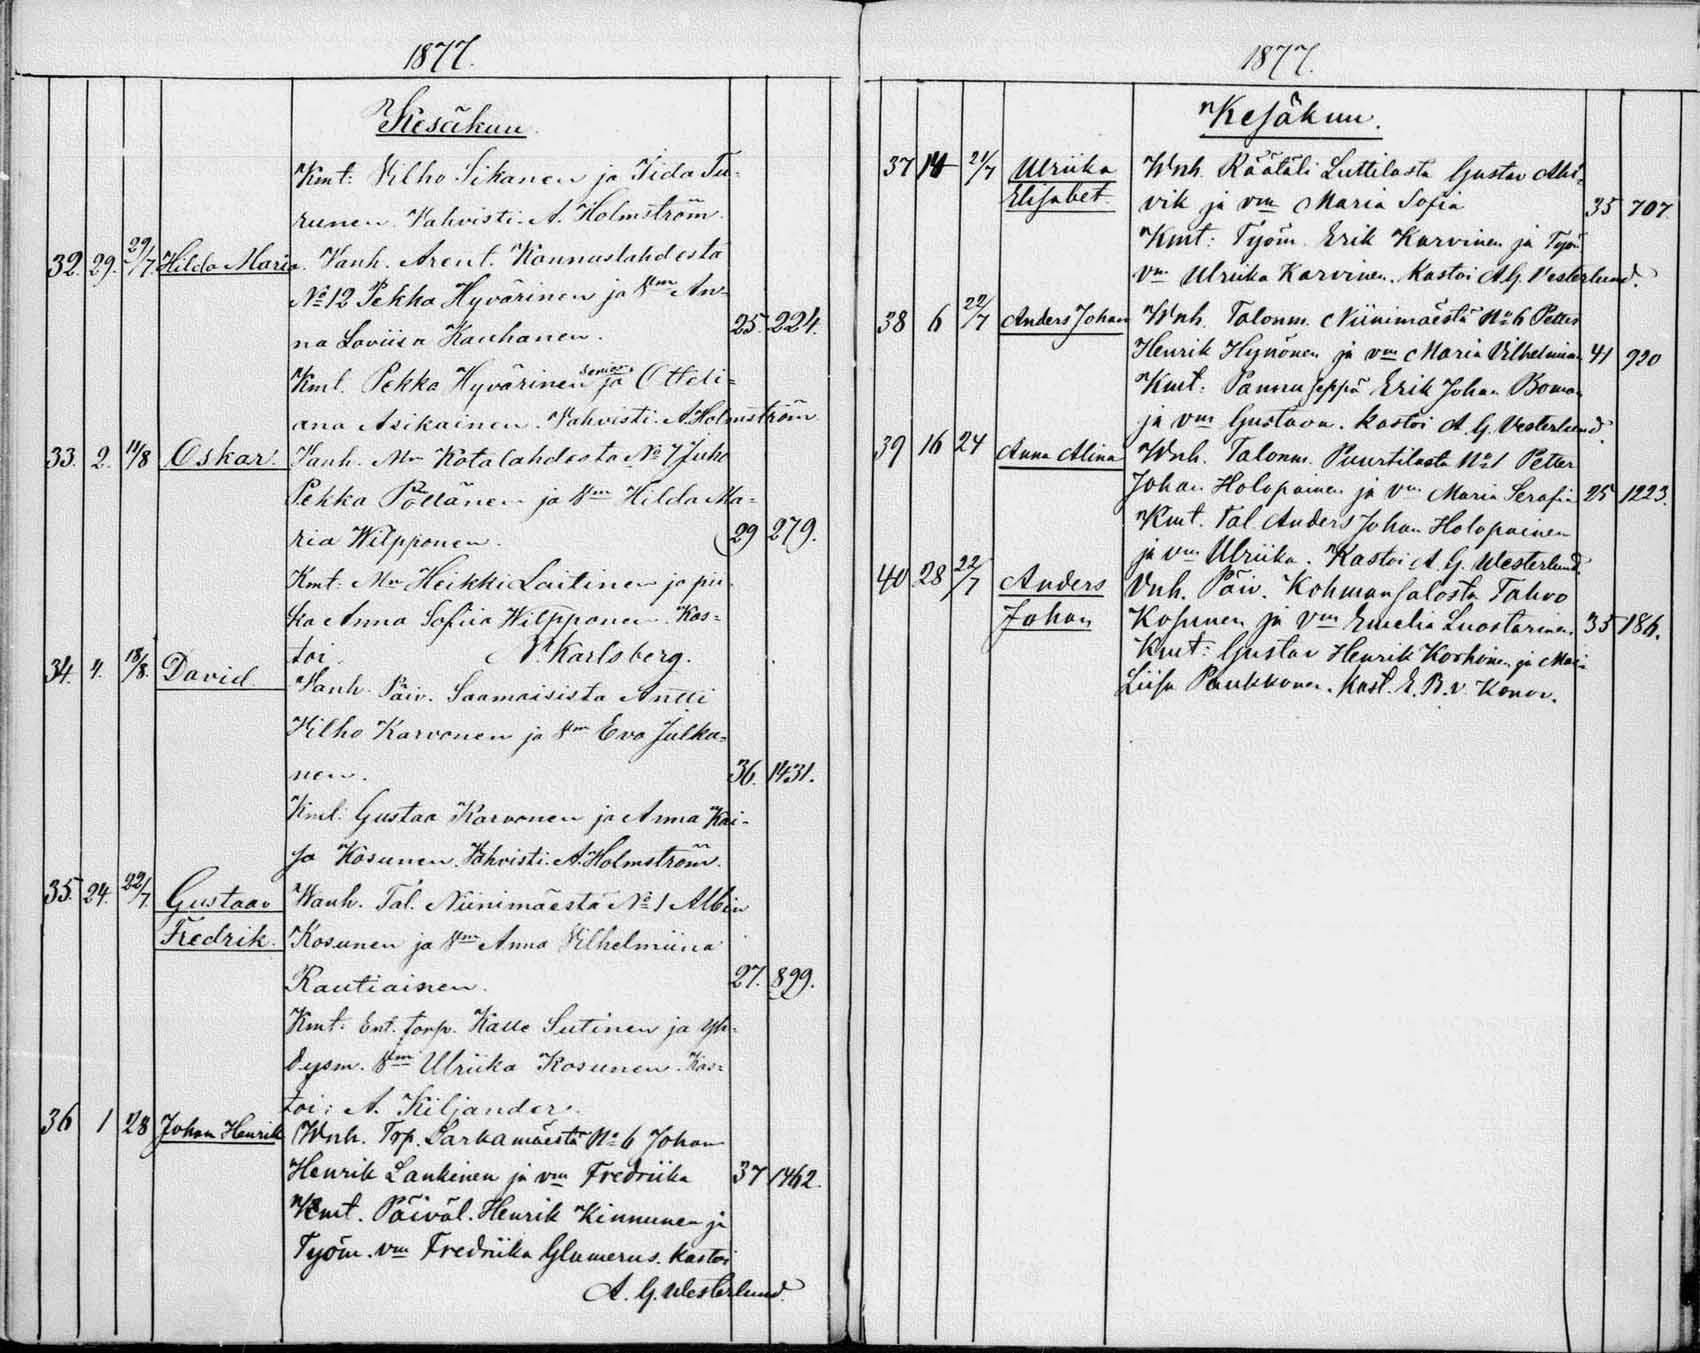 1877.
Kesäkuu.
Kmt: Vilho Sikanen ja Iida Tu-
runen. Vahvisti A. Holmström.
32. 29. 29/7. Hilda Maria. Vanh. Arent. Konnuslahdesta
No 12 Pekka Hyvärinen ja Vm An-
na Loviisa Kauhanen. 25. 224.
Kmt. Pekka Hyvärinen senior ja Otteli-
ana Asikainen. Vahvisti A. Holmström
33. 2. 11/8 Oskar. Vanh. Mn Kotalahdesta No 7 Juho
Pekka Pöllänen ja Vm Hilda Ma-
ria Wilpponen. 29 279.
Kmt: Mn Heikki Laitinen ja pii-
ka Anna Sofiia Wilpponen. Kas-
toi. V. Karlsberg.
34. 4. 18/8. David Vanh. Päiv. Saamaisista Antti
Vilho Karvonen ja Vm Eva Julku-
nen. 36. 1431.
Kmt: Gustaa Karvonen ja Anna Kai-
sa Kosunen. Vahvisti A. Holmström.
35. 24. 22/7. Gustaav Wanh. Tal. Niinimäestä No 1 Albin
Fredrik. Kosunen ja Vm Anna Vilhelmiina
Rautiainen. 27. 899.
Kmt: Ent. torp. Kalle Sutinen ja Yh-
deysm. Vm Ulriika Kosunen. Kas-
toi: A. Kiljander.
36 1 28 Johan Henrik Wnh. Trp. Sarkamäestä No 6 Johan
Henrik Lankinen ja vm Fredriika 37 1462.
Kmt. Päiväl. Henrik Kinnunen ja
Työm. vm Fredriika Glumerus. Kastoi
A. G. Westerlund.
1877.
Kesäkuu.
37 14 21/7 Ulriika Wnh. Räätäli Luttilasta Gustav Ahl-
Elisabet. vik ja vm Maria Sofia 35 707.
Kmt: Työm. Erik Karvinen ja Työm
vm Ulriika Karvinen. Kastoi A. G. Vesterlund.
38 6 22/7 Anders Johan Wnh. Talonm. Niinimäestä No 6 Petter
Henrik Hynönen ja vm Maria Vilhelmina 41 920
Kmt: Pannuseppä Erik Johan Boman
ja vm Gustava. Kastoi A. G. Vesterlund.
39 16 24 Anna Alina Wnh. Talonm. Puurtilasta No 1 Petter
Johan Holopainen ja vm Maria Serafia 25 1223.
Kmt. Tal. Anders Johan Holopainen
ja vm Ulriika. Kastoi A. G. Westerlund.
40 28 22/7 Anders Vnh. Päiv. Kohmansalosta Tahvo
Johan Kosunen ja Vm Emelia Luostarinen 35 186.
Kmt: Gustav Henrik Korhonen ja Mai-
Liisa Paukkonen. Kast. E. B. v. Konow.